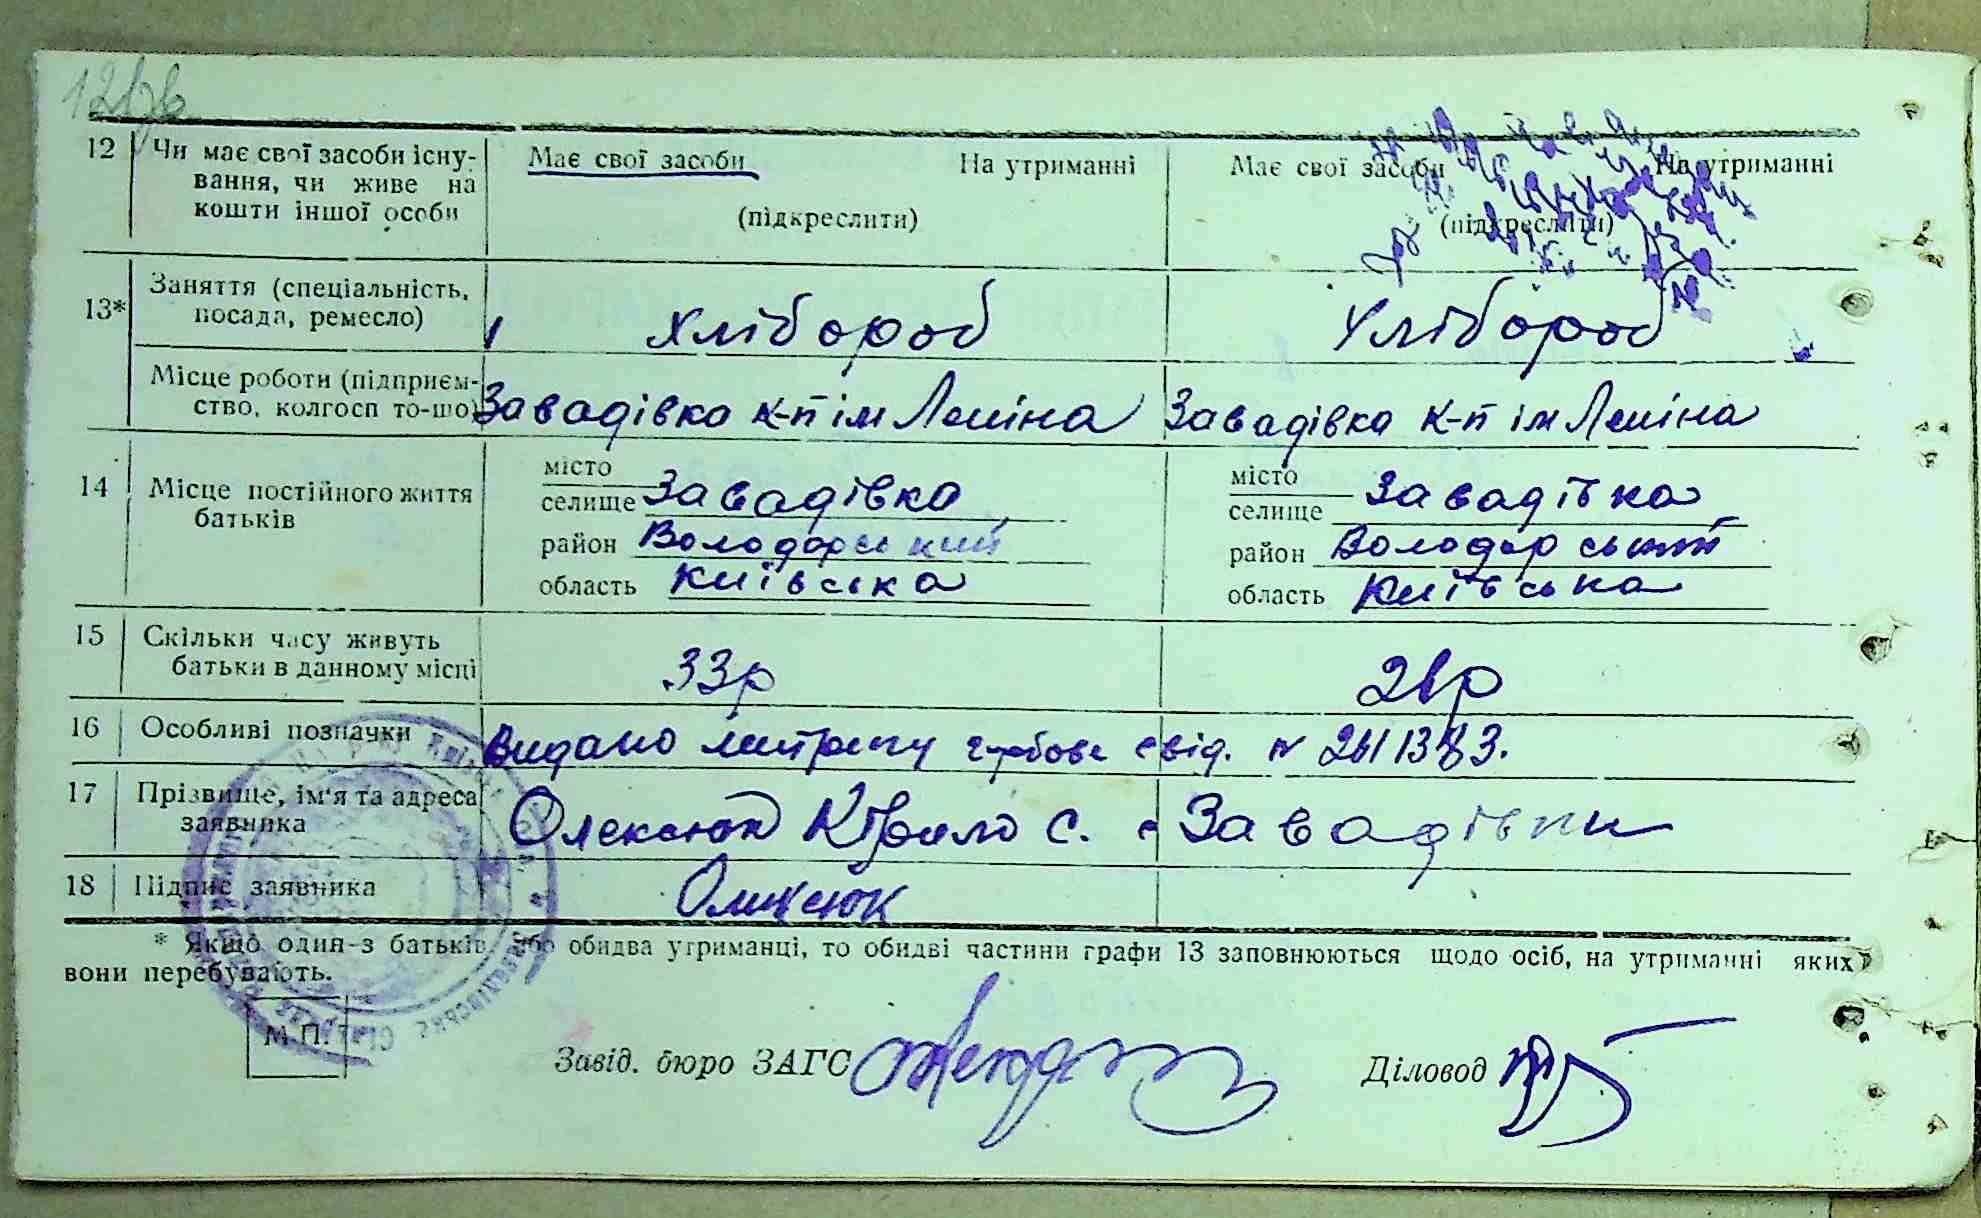 12 Чи має свої засоби існу- Має свої засоби На утриманні Має свої засоби На утриманні
вання, чи живе на
кошти іншої особи (підкреслити) (підкреслити)
13* Заняття (спеціальність, посада, ремесло) хлібороб хлібороб
Місце роботи (підприєм-
ство, колгосп то-що) Завадівка к-п ім Леніна Завадівка к-п ім Леніна
14 Місце постійного життя батьків
місто місто
селище Завадівка селище Завадівка
район Володарський район Володарський
область Київська область Київська
15 Скільки часу живуть
батьки в данному місці 33р
16 Особливі позначки Видано метрику гербове свід. №
17 Прізвище, ім'я та адреса
заявника Олексюк Кірило С. с Завадівки
18 Підпис заявника Олексюк
* Якщо один з батьків або обидва утриманці, то обидві частини графи 13 заповнюються щодо осіб, на утриманні яких
вони перебувають.
М.П.
Завід. бюро ЗАГС Діловод